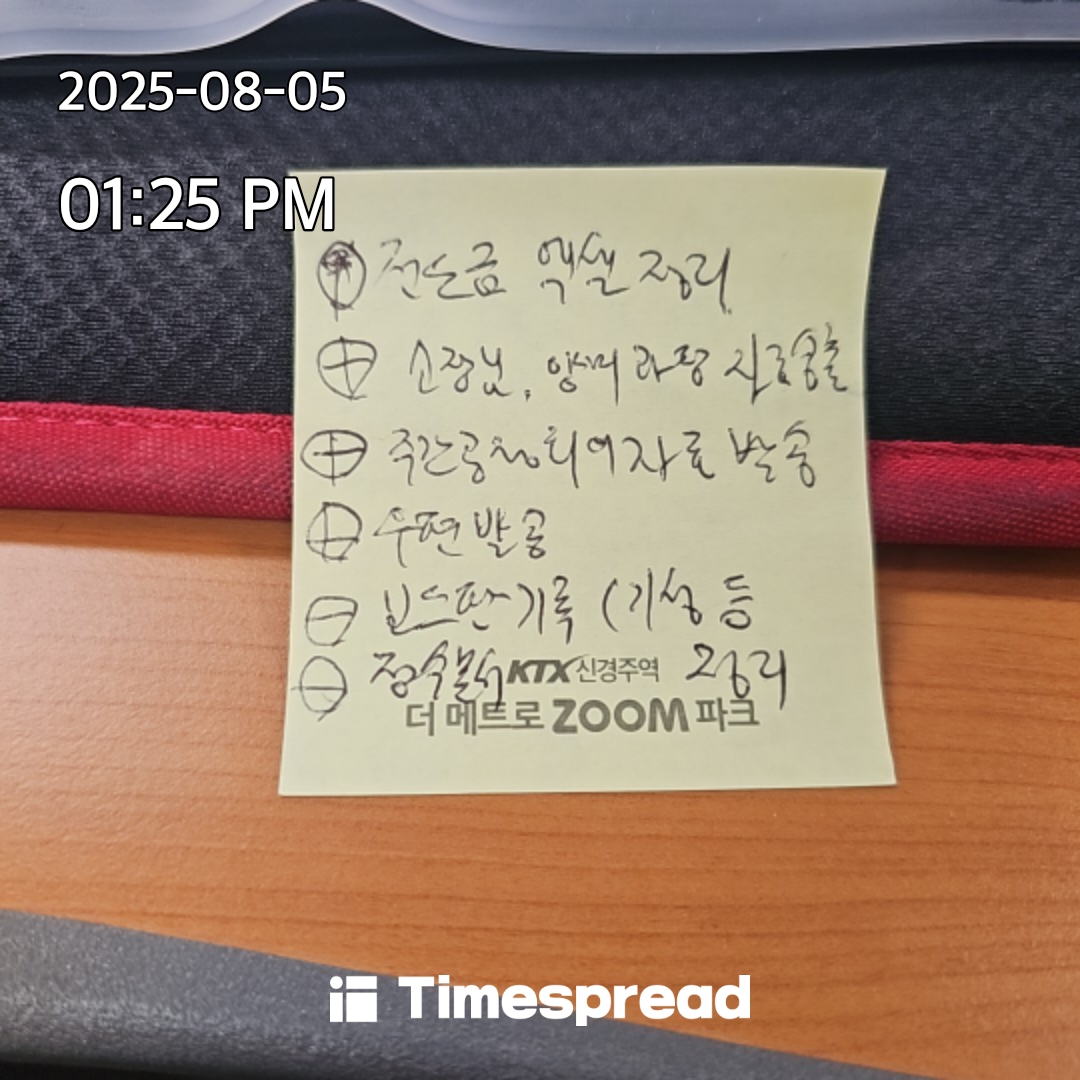 2025-08-05
01:25 PM
전도금 엑셀 정리
소장님, 양미 과장
주간공정회의자료 발송
우편발송
보드판기록 (기성 등
정리
KTX 신경주역
더 메트로 ZOOM 파크
Timespread